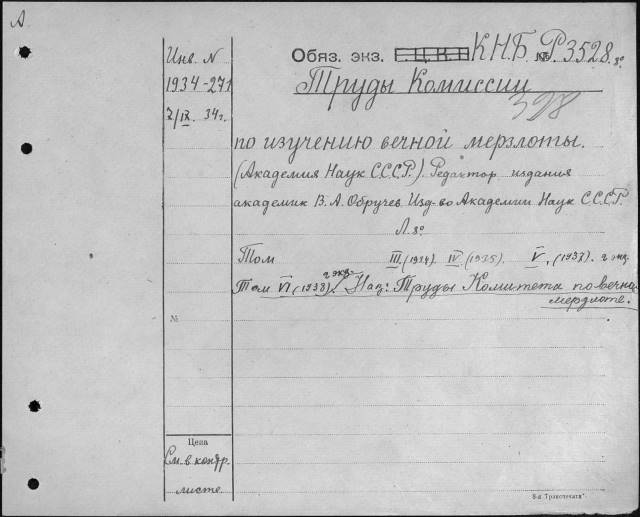 А
Инв. N
1934-271
7/IX 34г.
Обяз. экз. Г.Ц.К.П КНБ № Р3528 8°
Труды Комиссии
398
по изучению вечной мерзлоты.
(Академия Наук СССР.) Редактор издания
академик В. А. Обручев. Изд-во Академии Наук СССР
Л. 8°
Том III. (1934). IV (1935). V. (1937). 2 экз.
2 экз.
Том VI (1938). Наз: Труды Комитета по вечно-
мерзлоте.
№
Цена
См. в контр.
листе
8-я "Транспечати"